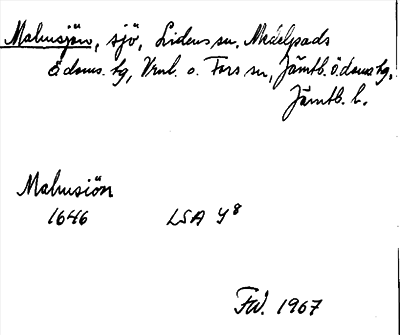 Malmsjön, sjö, Lidens sn, Medelpads
ö. doms. tg, Vnl. o. Fors sn, Jämtb. ö. doms tg,
Jämtb. l.
Malmsiön
1646 LSA Y8
FW. 1967